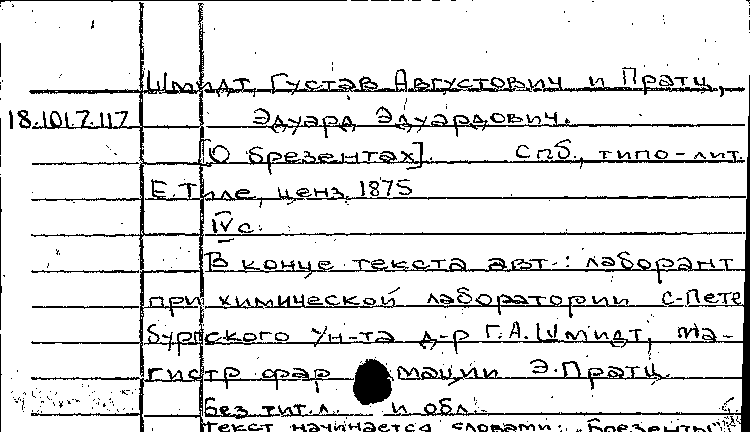 Шмидт, Густав Августович и Пратц,
18.101.7.117 Эдуард Эдуардович.
[О брезентах]. Спб., типо-лит.
Е. Тиле, ценз. 1875
IV с.
В конце текста авт.: лаборант
при химической лаборатории С-Пете
бургского Ун-та д-р Г.А. Шмидт, ма-
гистр фар мации Э. Пратц.
Без тит. л. и обл.
Текст начинается словами: "Брезенты"